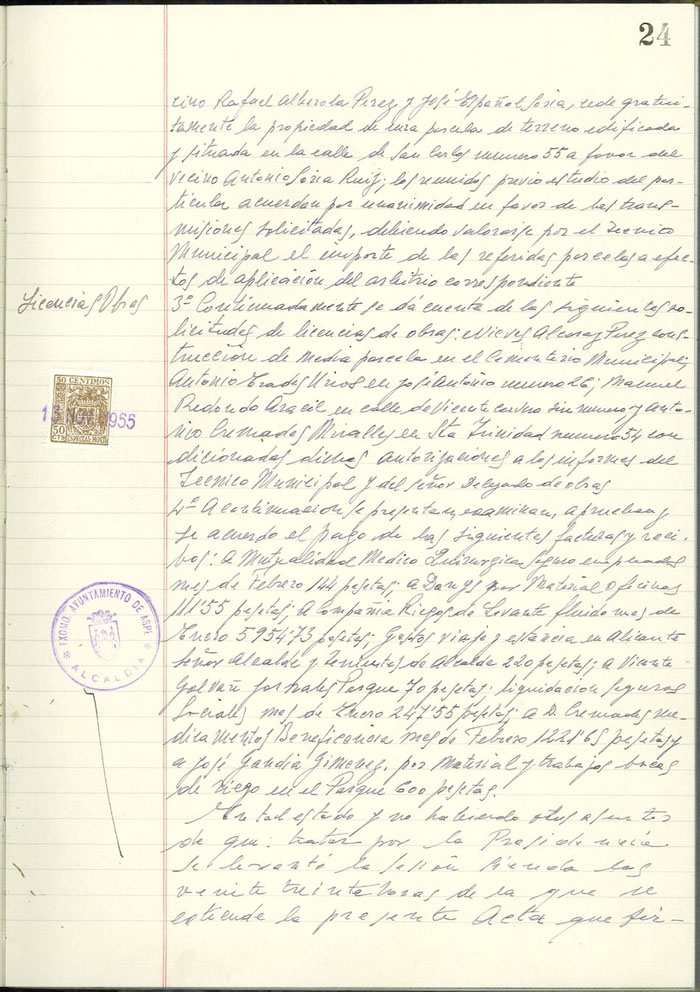 24
cino Rafael Alberola Perez y José Español Soria, cede gratui-
tamente la propiedad de una parcela de terreno edificada
y situada en la calle de San Carlos numero 55 a favor del
vecino Antonio Soria Ruiz; los reunidos previo estudio del par-
ticular acuerdan por unanimidad en favor de las trans-
misiones solicitadas, debiendo valorarse por el Tecnico
Municipal el importe de las referidas parcelas a efec-
tos de aplicación del arbitrio correspondiente
Licencias Obras
3º Continuadamente se dá cuenta de las siguientes so-
licitudes de licencias de obras: Nieves Alcaraz Perez cons-
trucción de media parcela en el Cementerio Municipal;
Antonio Prades in José Antonio numero 26; Manuel
Redondo Aracil en calle de Vicente sin numero y Anto-
nio Cremades Miralles en Sta Trinidad numero 54 con
dicionadas dichas autorizaciones a los informes del
Tecnico Municipal y del señor Delegado de obras
50 CENTIMOS
50 CTS ESPECIAL MOVIL
13 NOV. 1955
4º A continuacion se presentan, examinan, aprueban y
se acuerdo el pago de las siguientes facturas y reci-
bos: a Mutualidad Medico Quirurgica seguro empleados
mes de Febrero 144 pesetas; a Danys por Material Oficinas
111'55 pesetas; a Compañia Riegos de Levante fluido mes de
Enero 5954'73 pesetas; Gastos viaje y estancia en Alicante
Señor Alcalde y Tenientes de Alcalde 220 pesetas; a Vicente
Galvañ jornales Parque 70 pesetas; liquidacion seguros
Sociales mes de Enero 247'55 pesetas; a D. Cremades me-
dicamentos Beneficencia mes de Febrero 1221'65 pesetas y
a José Gandia Gimenez, por Material y trabajos bocas
de riego en el Parque 600 pesetas.
EXCMO. AYUNTAMIENTO DE ASPE
ALCALDIA
En tal estado y no habiendo otros asuntos
de que tratar por la Presidencia
se levantó la sesión siendo las
veinte treinta horas de la que se
extiende la presente Acta que fir-